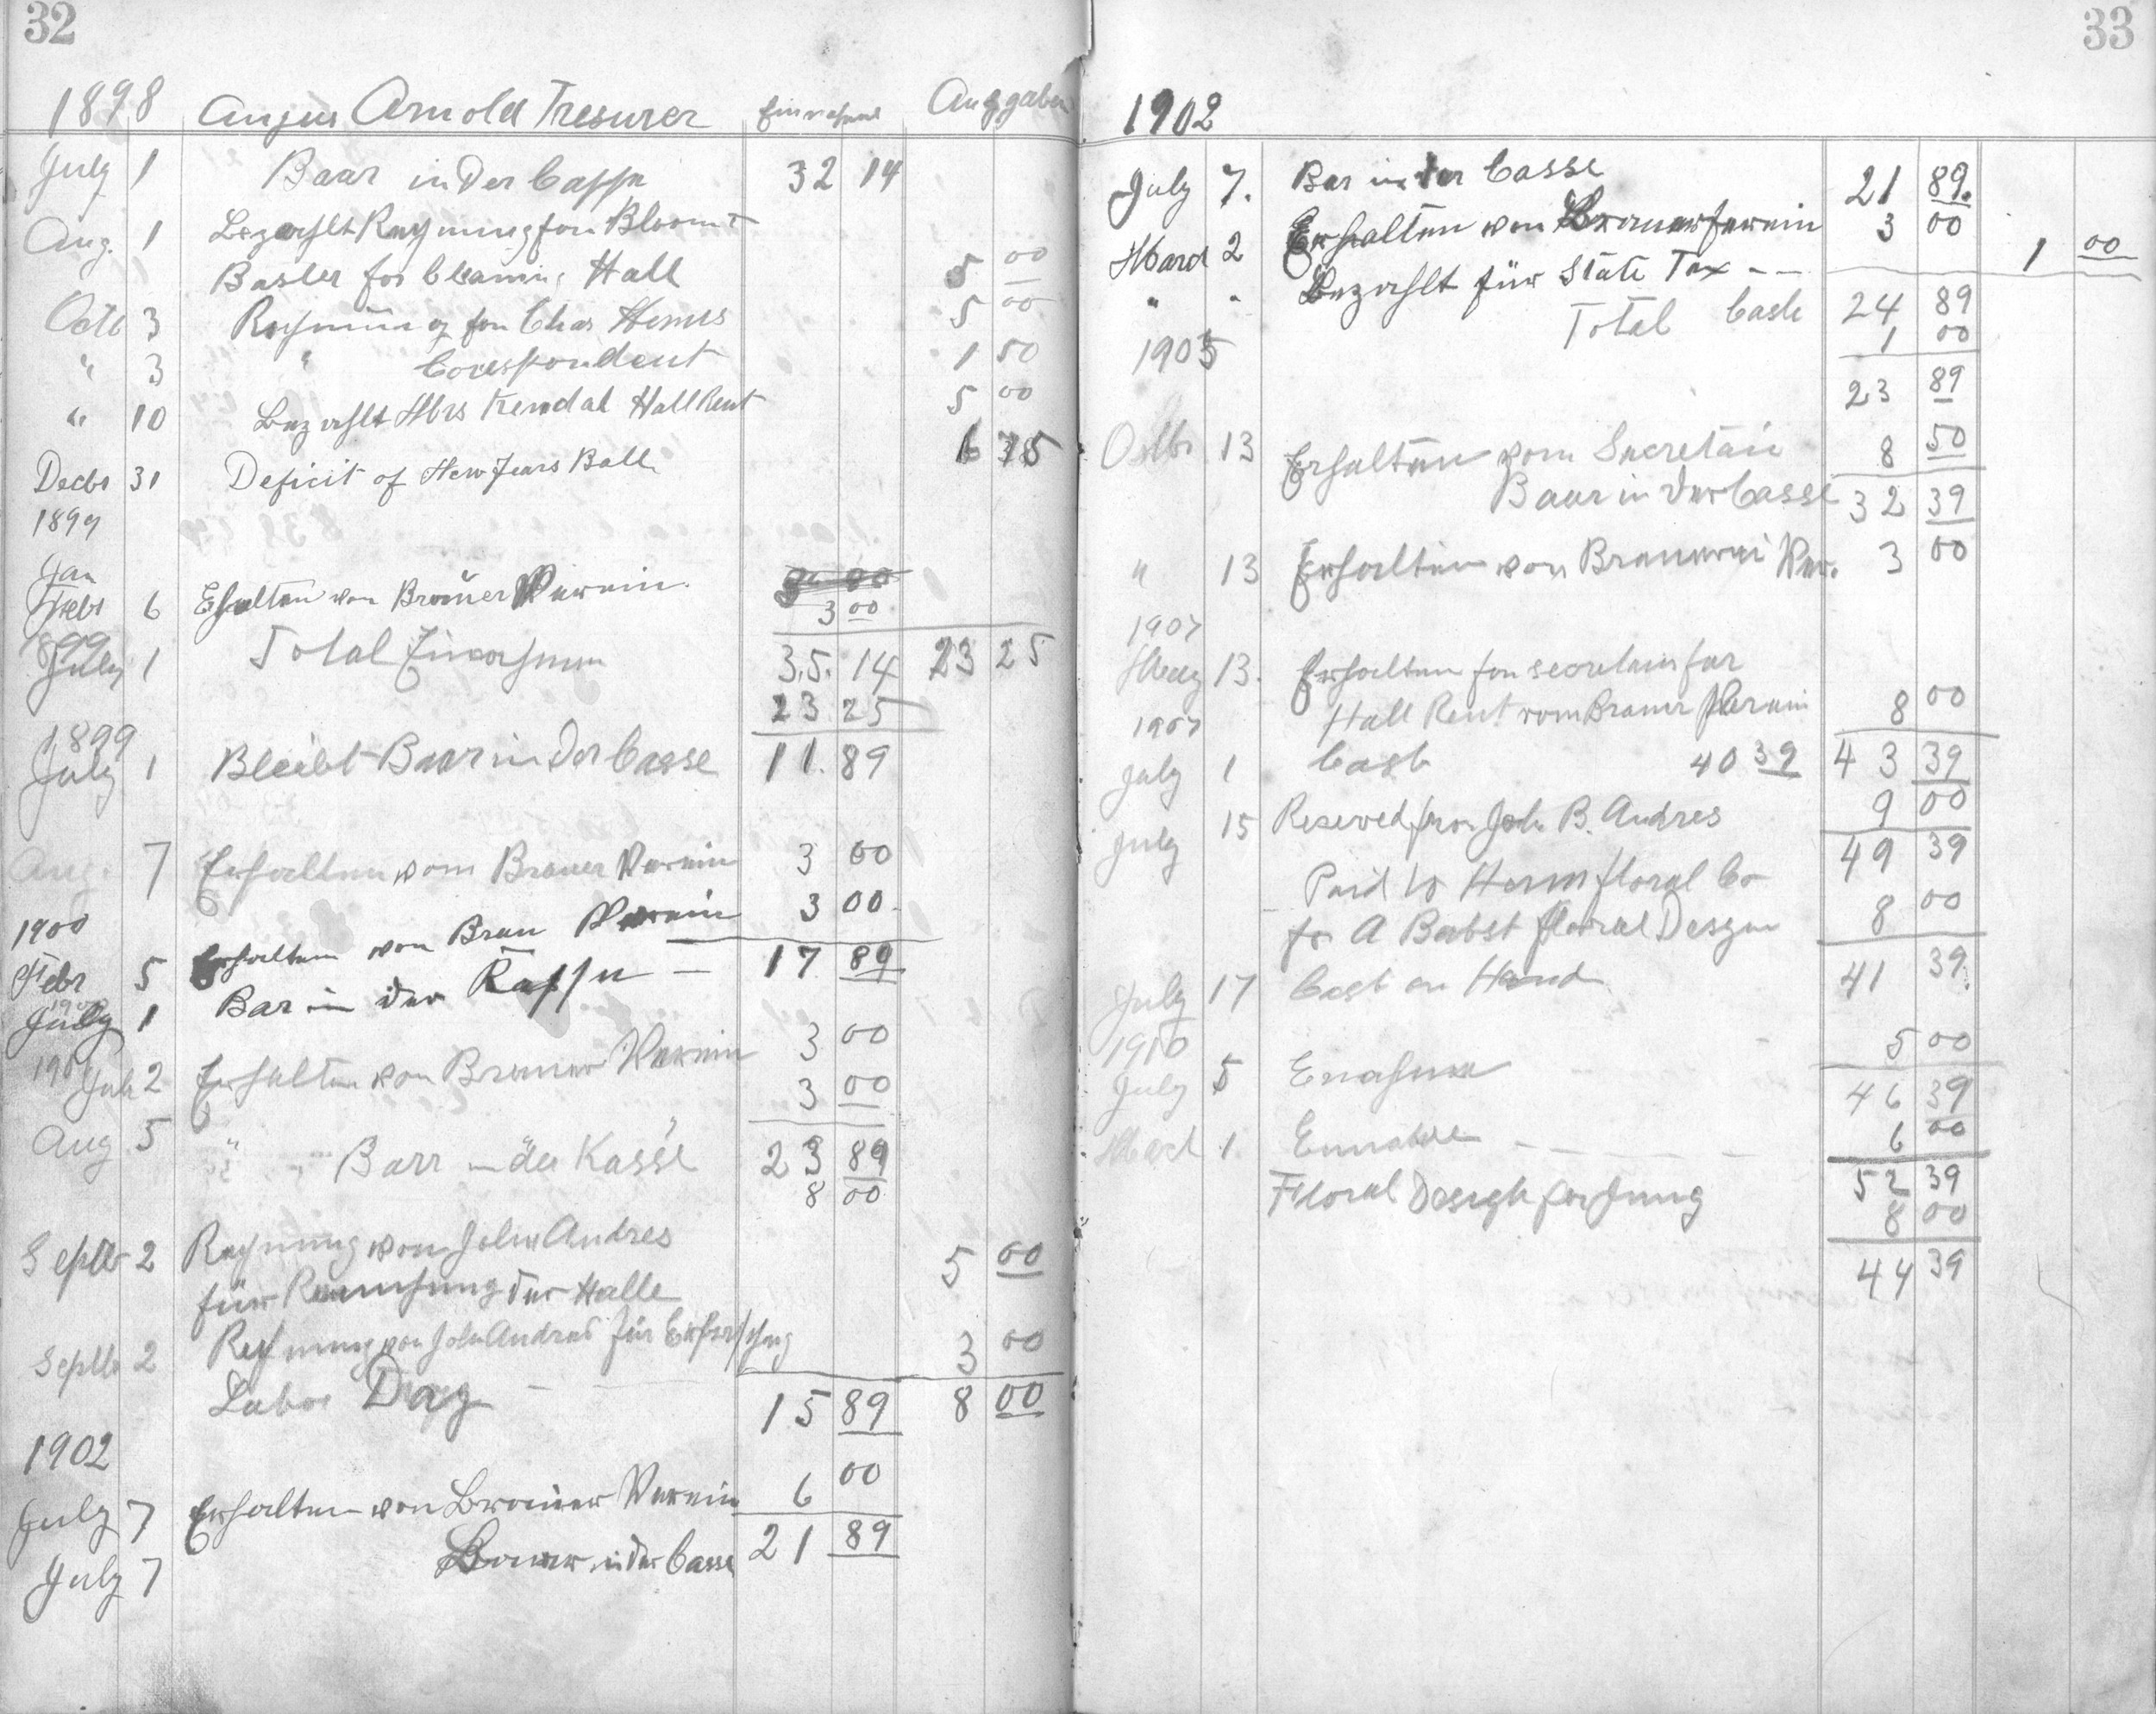 32
1898 Arnold Tresurer Einnahme Ausgaben
July 1 Baar in der Casse 32 14
Aug. 1 Bezahlt Rechnung fon Bloom
Basler for Cleaning Hall 5 00
Octb 3 Rechnung fon Chas Hemus 5 00
" 3 " Corespondent 1 50
" 10 Bezahlt Mrs Kendal Hall Rent 5 00
Decbr 31 Deficit of New Jears Ball 6 75
1899
Jan
Febr 6 Erhalten von Brauer Verein. 3 00
1899
July 1 Total Einnahmen 35. 14 23 25
23 25
1899
July 1 Bleibt Baar in der Casse 11. 89
Aug. 7 Erhalten vom Brauer Verein 3 00
1900
Febr 5 Erhalten von Brau Verein 3 00.
1900
July 1 Bar in der Kasse — 17 89
1901
July 2 Erhalten von Brauer Verein 3 00
Aug 5 " 3 00
Barr in der Kasse 23 89
8 00
Septbr 2 Rechnung von John Andres
für Reinigung der Halle 5 00
Septb 2 Rechnung von John Andres für
Labor Dag 3 00
15 89 8 00
1902
July 7 Erhalten von Brauer Verein 6 00
July 7 Baar in der Casse 21 89
33
1902
July 7. Bar in der Casse 21 89.
March 2 Erhalten von Brauerferein 3 00
" " Bezahlt für State Tax - - 1 00
1905 Total Cash 24 89
1 00
23 89
Octbr 13 Erhalten vom Secretair 8 50
Baar in der Casse 32 39
" 13 Erhalten von Brauerei Ver. 3 00
1907
May 13. Erhalten fon secretair for
Hall Rent vom Brauer Verein 8 00
1907
July 1 Cash 40 39 43 39
July 15 Reseved from Joh B. Andres 9 00
49 39
Paid to Herm floral Co
for A Babst floral Desgin 8 00
July 17 Cash on Hand 41 39.
1910
July 5 Einahme 5 00
46 39
March 1. Einnahme 6 00
52 39
Floral Design for Jung 8 00
44 39